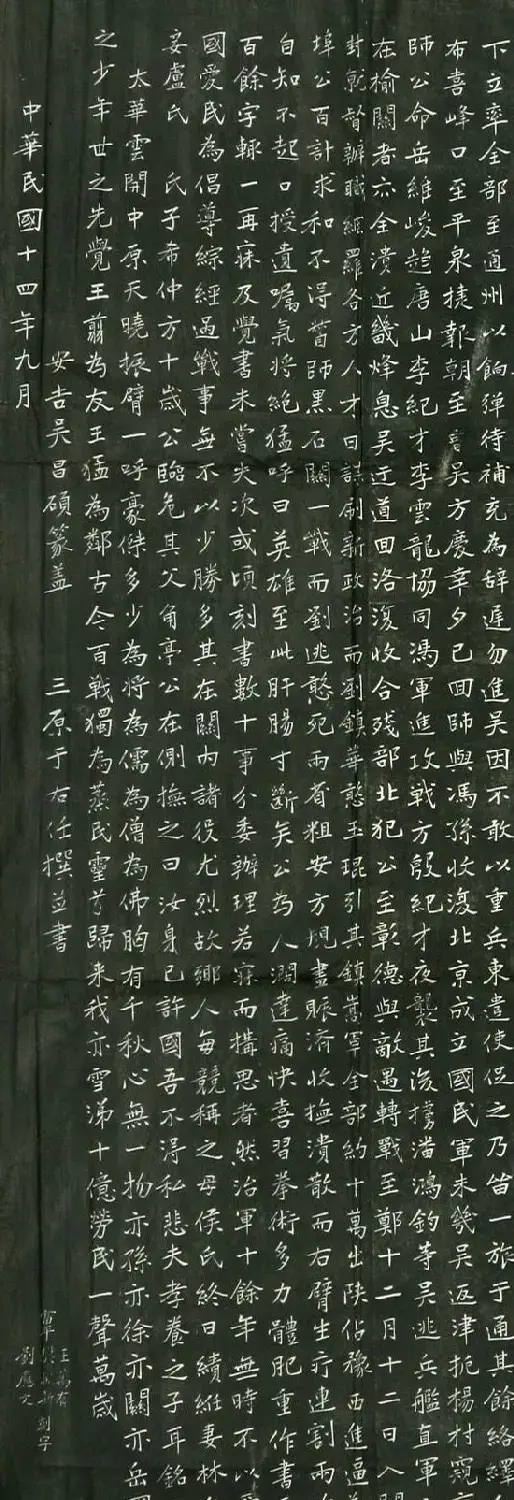 下立率全部至通州以餉彈待補充為辞遲勿進吳因不敢以重兵東遣使促之乃笛一旅于通其餘絡繹
布喜峰口至平泉捷報朝至吳方慶幸夕已回師與馮孫收復北京成立國民軍未幾吳返津扼楊村窺
師公命岳維峻趙唐山李紀才李雲龍協同馮軍進攻戰方殷紀才夜襲其後擄潘鴻鈞等吳逃兵艦直軍
在榆關者亦全潰近畿烽息吳迂道回洛復收合殘部北犯公至彰德與敵遇轉戰至鄭十二月十二日入
封就督辦職經羅各方人才日謀刷新政治而劉鎮華憨玉琨引其鎮嵩軍全部約十萬出陝佔豫西進逼
埠公百計求和不得誓師黑石關一戰而劉逃憨死兩省粗安方規畫賑濟收撫潰散而右臂生疔連割兩
自知不起口授遺囑氣將絕猛呼曰英雄至此肝腸寸斷矣公為人濶達痛快喜習拳術多力體肥重作書
百餘字輒一再寐及覺書未嘗失次或頃刻書數十事分委辦理若寐而搆思者然治軍十餘年無時不以
國愛民為倡導綜經過戰事無不以少勝多其在關內諸役尤烈故鄉人每競稱之母侯氏終日績紝妻林
妾盧氏 氏子希仲方十歲公臨危其父角亭公在側撫之曰汝身已許國吾不得私悲夫孝養之子耳銘
太華雲開中原天曉振臂一呼豪傑多少為將為儒為僧為佛胸有千秋心無一物亦孫亦徐亦關亦岳
之少年世之先覺王翦為友王猛為鄰古今百戰獨為蒸民靈兮歸来我亦雪涕十億勞民一聲萬歲
安吉吳昌碩篆盖 三原于右任撰並書
中華民國十四年九月
富平 王 有
劉應文 刻字